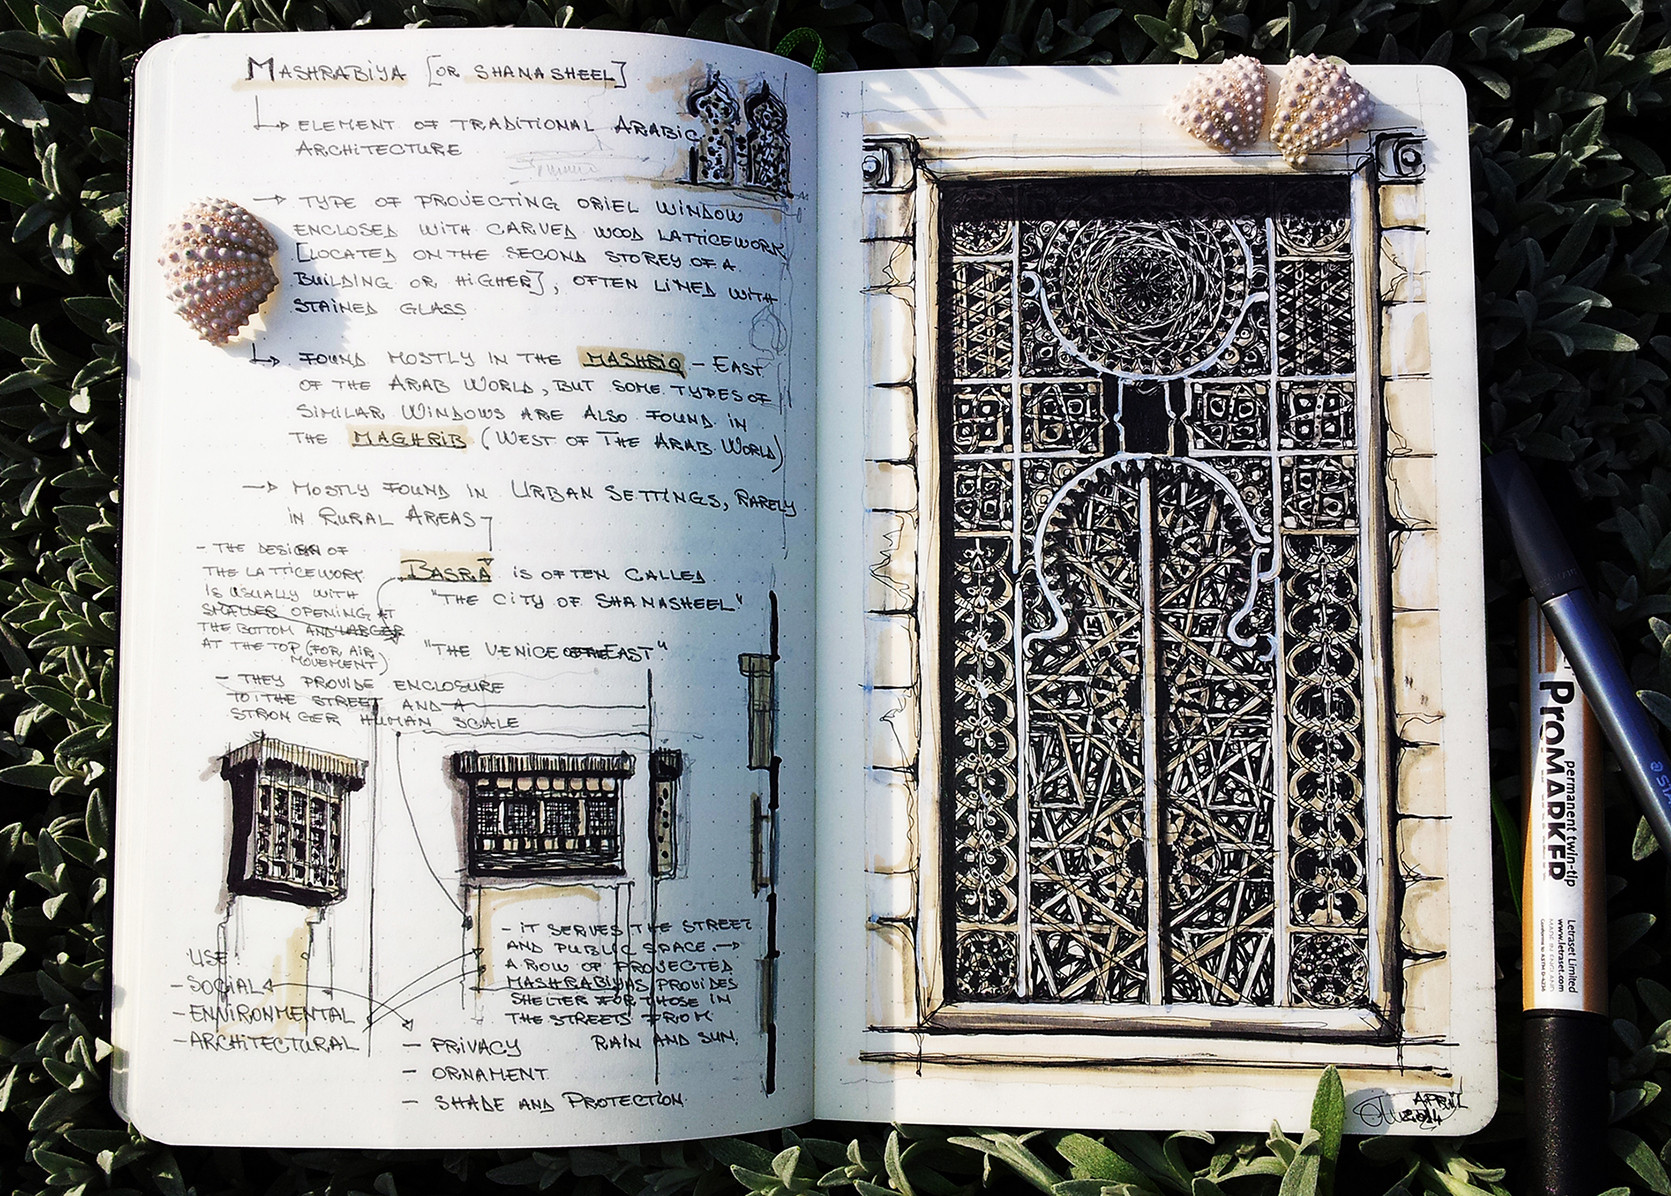 MASHRABIYA [OR SHANASHEEL]
ELEMENT OF TRADITIONAL ARABIC
ARCHITECTURE
TYPE OF PROJECTING ORIEL WINDOW
ENCLOSED WITH CARVED WOOD LATTICEWORK
[LOCATED ON THE SECOND STOREY OF A
BUILDING OR HIGHER], OFTEN LINED WITH
STAINED GLASS
FOUND MOSTLY IN THE MASHRIQ - EAST
OF THE ARAB WORLD, BUT SOME TYPES OF
SIMILAR WINDOWS ARE ALSO FOUND IN
THE MAGHRIB (WEST OF THE ARAB WORLD)
MOSTLY FOUND IN URBAN SETTINGS, RARELY
IN RURAL AREAS
BASRA IS OFTEN CALLED
"THE CITY OF SHANASHEEL"
"THE VENICE OF THE EAST"
- THE DESIGN OF
THE LATTICEWORK
IS USUALLY WITH
SMALLER OPENING AT
THE BOTTOM AND LARGER
AT THE TOP (FOR AIR
MOVEMENT)
- THEY PROVIDE ENCLOSURE
TO THE STREET AND A
STRONGER HUMAN SCALE
- IT SERVES THE STREET
AND PUBLIC SPACE →
A ROW OF PROJECTED
MASHRABIYAS PROVIDES
SHELTER FOR THOSE IN
THE STREETS FROM
RAIN AND SUN.
USE:
- SOCIAL
- ENVIRONMENTAL
- ARCHITECTURAL
- PRIVACY
- ORNAMENT
- SHADE AND PROTECTION
APRIL
2014
PROMARKER
permanent twin-tip
Letraset Limited
www.letraset.com
MADE IN ENGLAND